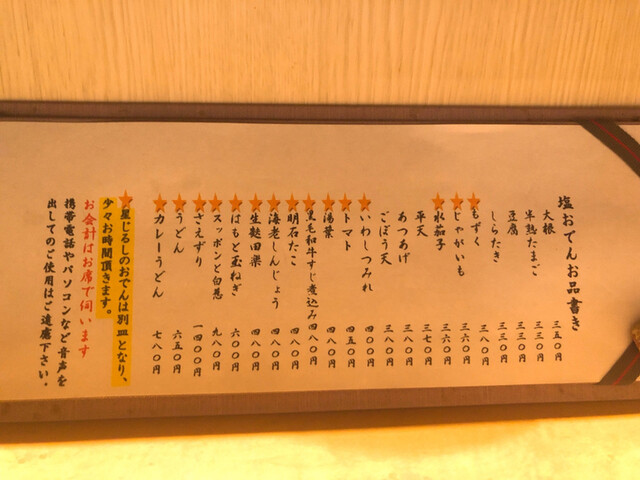 塩おでんお品書き
大根 三五〇円
半熟たまご 三三〇円
豆腐 三三〇円
しらたき 三三〇円
★もずく 三八〇円
★じゃがいも 三六〇円
★水茄子 三六〇円
平天 三七〇円
あつあげ 三八〇円
ごぼう天 三八〇円
★いわしつみれ 四〇〇円
★トマト 四五〇円
★湯葉 四八〇円
★黒毛和牛すじ煮込み 四八〇円
★明石たこ 四八〇円
★海老しんじょう 四八〇円
★生麩田楽 四八〇円
★はもと玉ねぎ 六〇〇円
★スッポンと白葱 九八〇円
★さえずり 一四〇〇円
★うどん 六五〇円
★カレーうどん 七八〇円
★星じるしのおでんは別皿となり、
少々お時間頂きます。
お会計はお席で伺います
携帯電話やパソコンなど音声を
出してのご使用はご遠慮下さい。